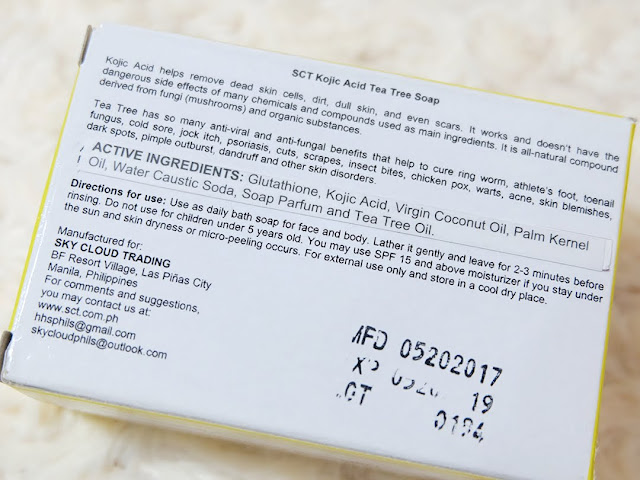 SCT Kojic Acid Tea Tree Soap
Kojic Acid helps remove dead skin cells, dirt, dull skin, and even scars. It works and doesn't have the
dangerous side effects of many chemicals and compounds used as main ingredients. It is all-natural compound
derived from fungi (mushrooms) and organic substances.
Tea Tree has so many anti-viral and anti-fungal benefits that help to cure ring worm, athlete's foot, toenail
fungus, cold sore, jock itch, psoriasis, cuts, scrapes, insect bites, chicken pox, warts, acne, skin blemishes,
dark spots, pimple outburst, dandruff and other skin disorders.
ACTIVE INGREDIENTS: Glutathione, Kojic Acid, Virgin Coconut Oil, Palm Kernel
Oil, Water Caustic Soda, Soap Parfum and Tea Tree Oil.
Directions for use: Use as daily bath soap for face and body. Lather it gently and leave for 2-3 minutes before
rinsing. Do not use for children under 5 years old. You may use SPF 15 and above moisturizer if you stay under
the sun and skin dryness or micro-peeling occurs. For external use only and store in a cool dry place.
Manufactured for:
SKY CLOUD TRADING
BF Resort Village, Las Piñas City
Manila, Philippines
For comments and suggestions,
you may contact us at:
www.sct.com.ph
hhsphils@gmail.com
skycloudphils@outlook.com
MFD 05202017
19
0194